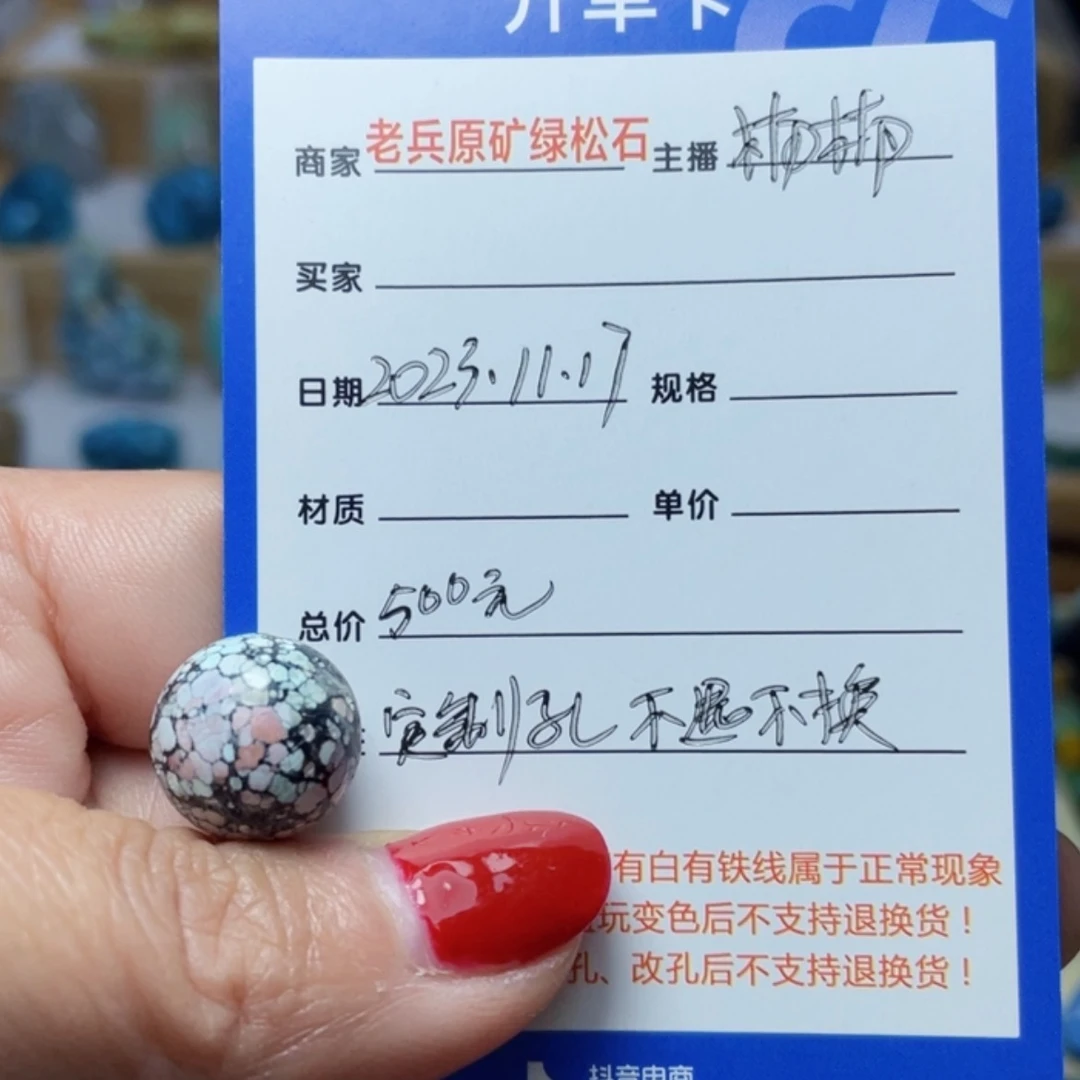 开单卡
商家 老兵原矿绿松石 主播
买家
日期 2023.11.17 规格
材质 单价
总价 500元
定制孔 不退不换
有白有铁线属于正常现象
玩变色后不支持退换货！
孔、改孔后不支持退换货！
抖音电商